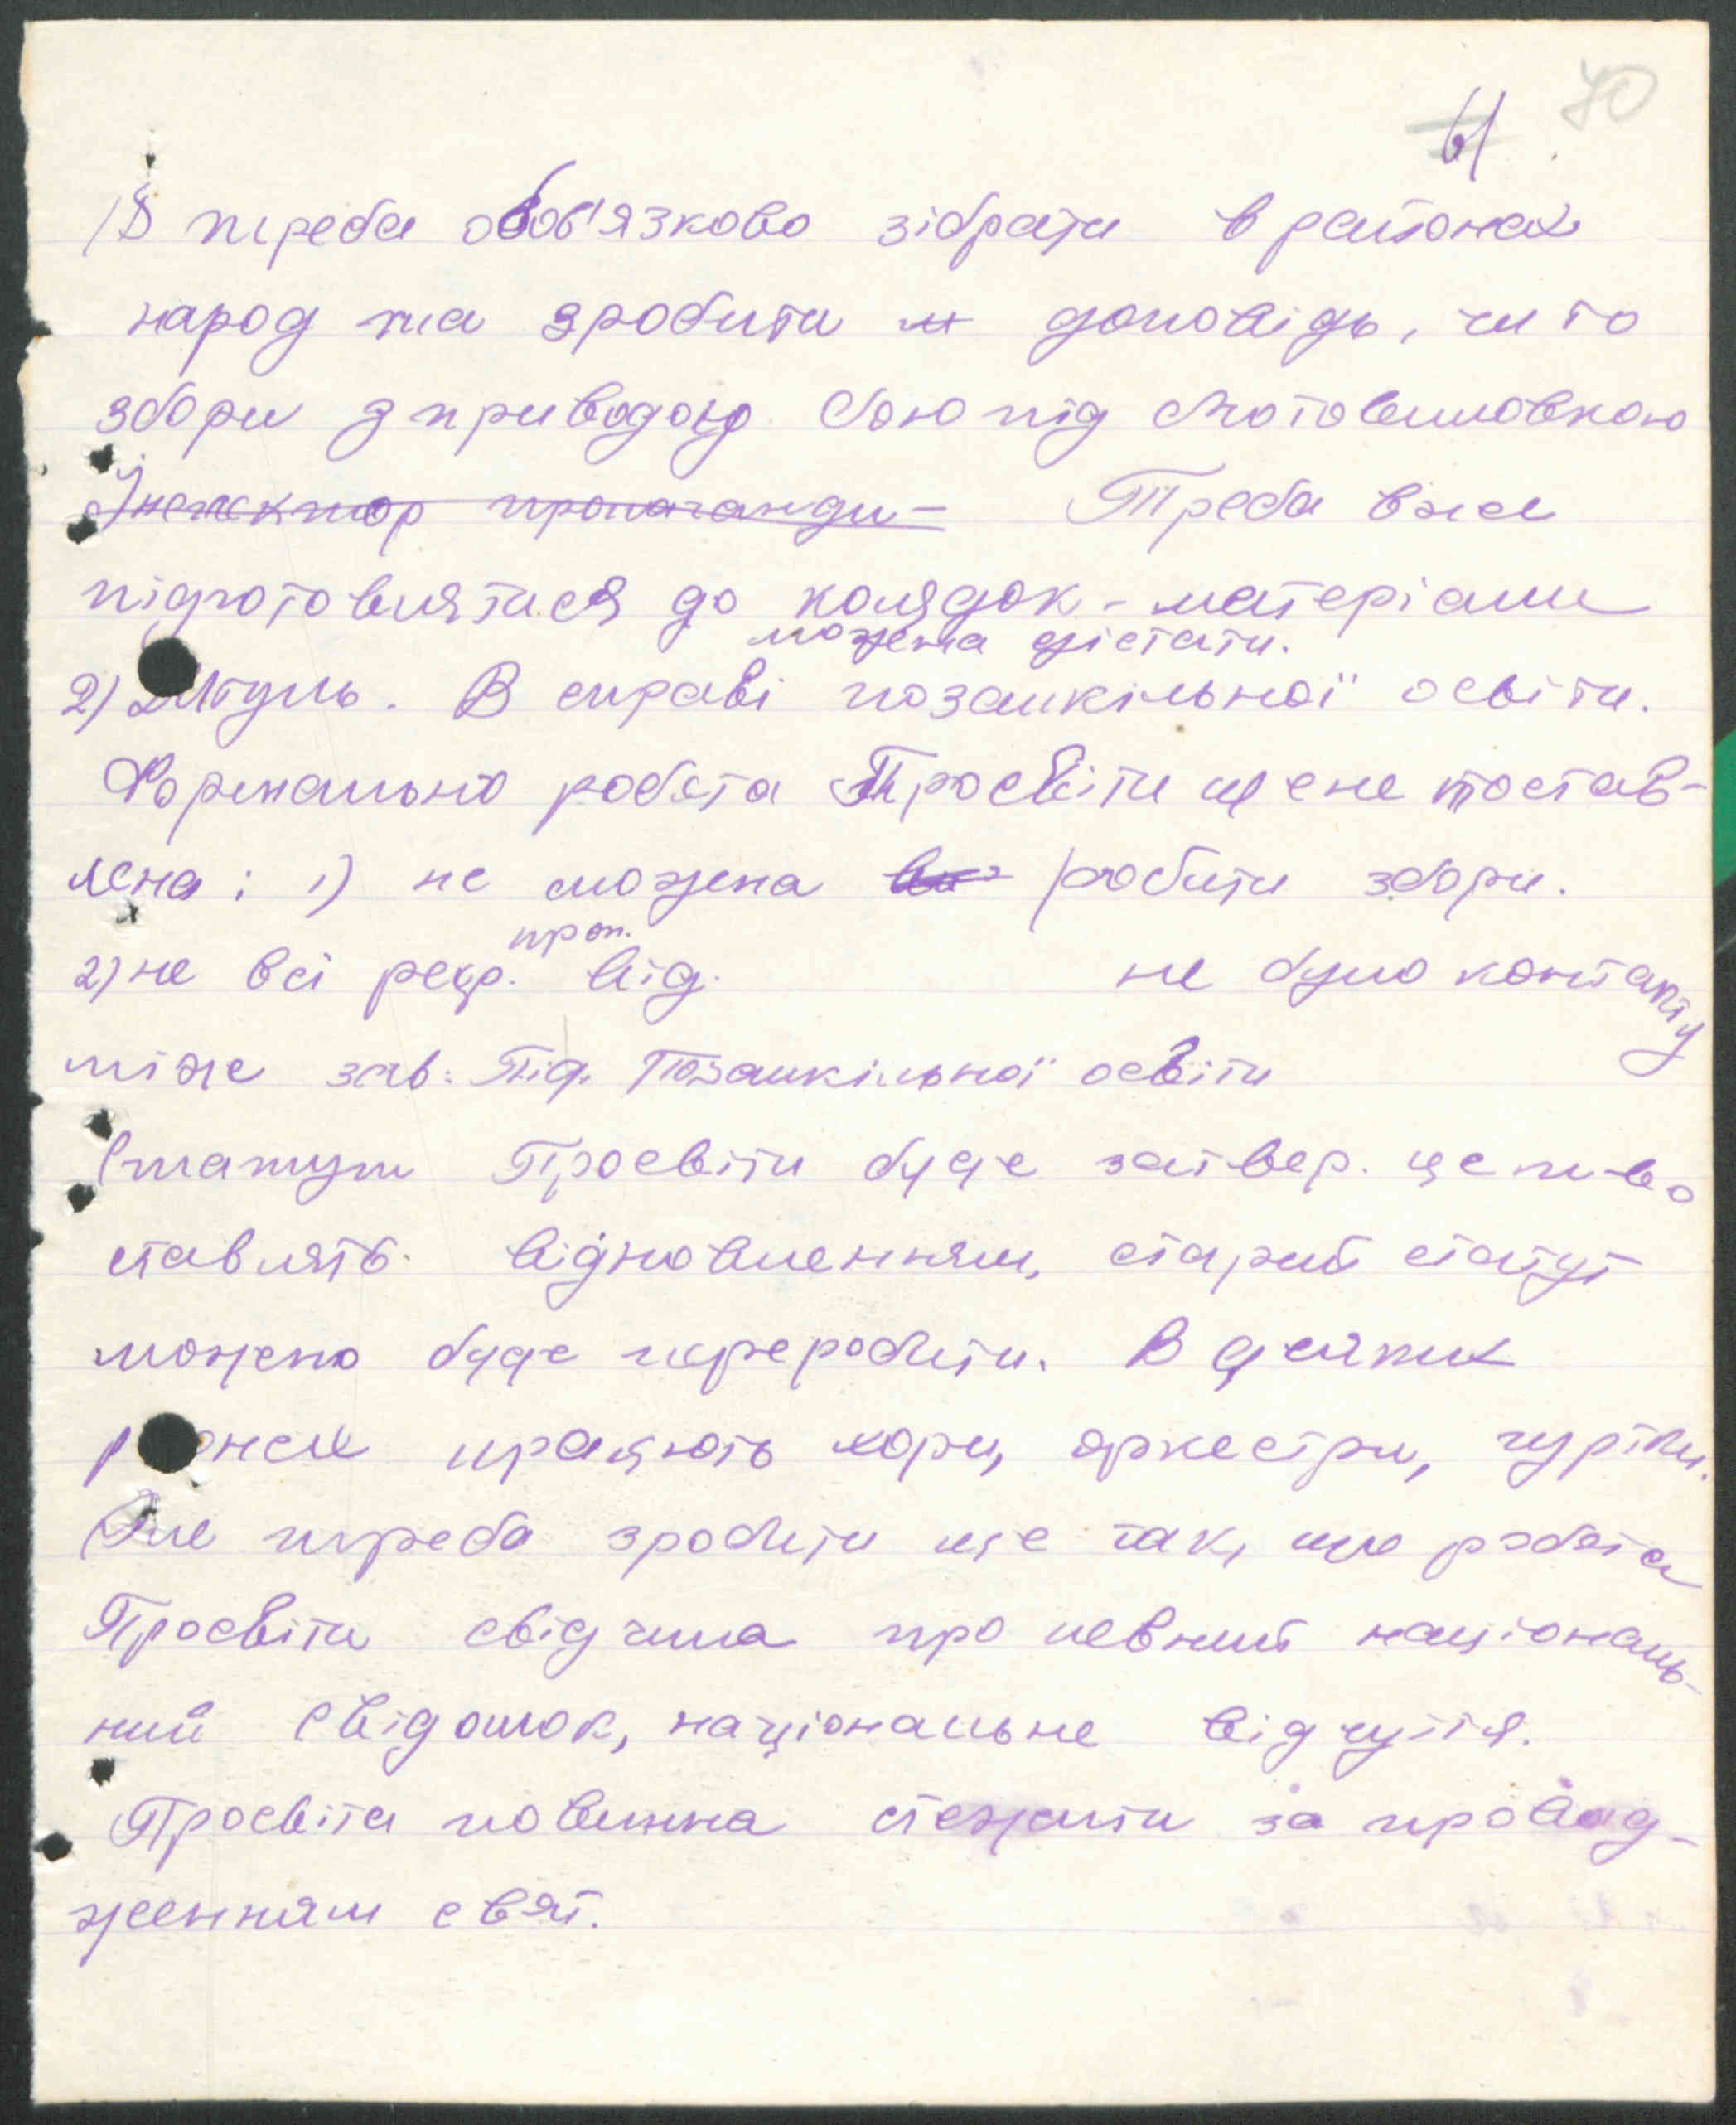 61 70
треба обов'язково зібрати в районах
народ та зробити доповідь, чи то
збори з приводою бою під Мотовиловкою
Інспектор пропаганди – Треба вже
підготовлятися до колядок – матеріали
можна дістати.
2) Штуль. В справі позашкільної освіти.
Формально робота Просвіти ще не постав-
лена: 1) не можна робити збори.
проп.
2) не всі реф. від. не було контакту
між зав. Під. Позашкільної освіти
Статут Просвіти буде затвер. це
ставлять відновленням, старий статут
можно буде переробити. В деяких
працюють хори, оркестри, гуртки.
Але треба зробити ще так, що робота
Просвіти свідчила про певний націонал-
ний свідомок, національне відчуття.
Просвіта повинна стежити за провад-
женням свят.